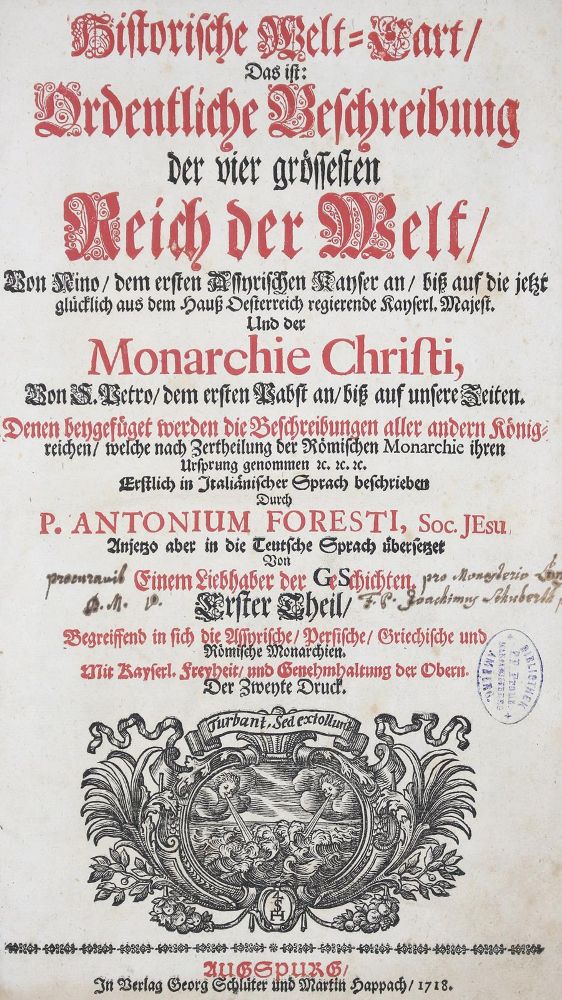 Historische Welt-Cart/
Das ist:
Ordentliche Beschreibung
der vier grössesten
Reich der Welt/
Von Nino/ dem ersten Assyrischen Kayser an/ biß auf die jetzt
glücklich aus dem Hauß Oesterreich regierende Kayserl. Majest.
Und der
Monarchie Christi,
Von S. Petro/ dem ersten Pabst an/ biß auf unsere Zeiten.
Denen beygefüget werden die Beschreibungen aller andern König-
reichen/ welche nach Zertheilung der Römischen Monarchie ihren
Ursprung genommen ꝛc. ꝛc. ꝛc.
Erstlich in Italiänischer Sprach beschrieben
Durch
P. ANTONIUM FORESTI, Soc. JEsu,
Anjetzo aber in die Teutsche Sprach übersetzet
Von
Einem Liebhaber der GeSchichten.
procuravit pro Monasterio
Erster Theil/
F. P. Joachimus Schubert
Begreiffend in sich die Assyrische/ Persische/ Griechische und
Römische Monarchien.
Mit Kayserl. Freyheit/ und Genehmhaltung der Obern.
Der Zweyte Druck.
BIBLIOTHEK
AMBERG
Turbant, Sed extollunt
AUGSPURG/
In Verlag Georg Schlüter und Martin Happach/ 1718.